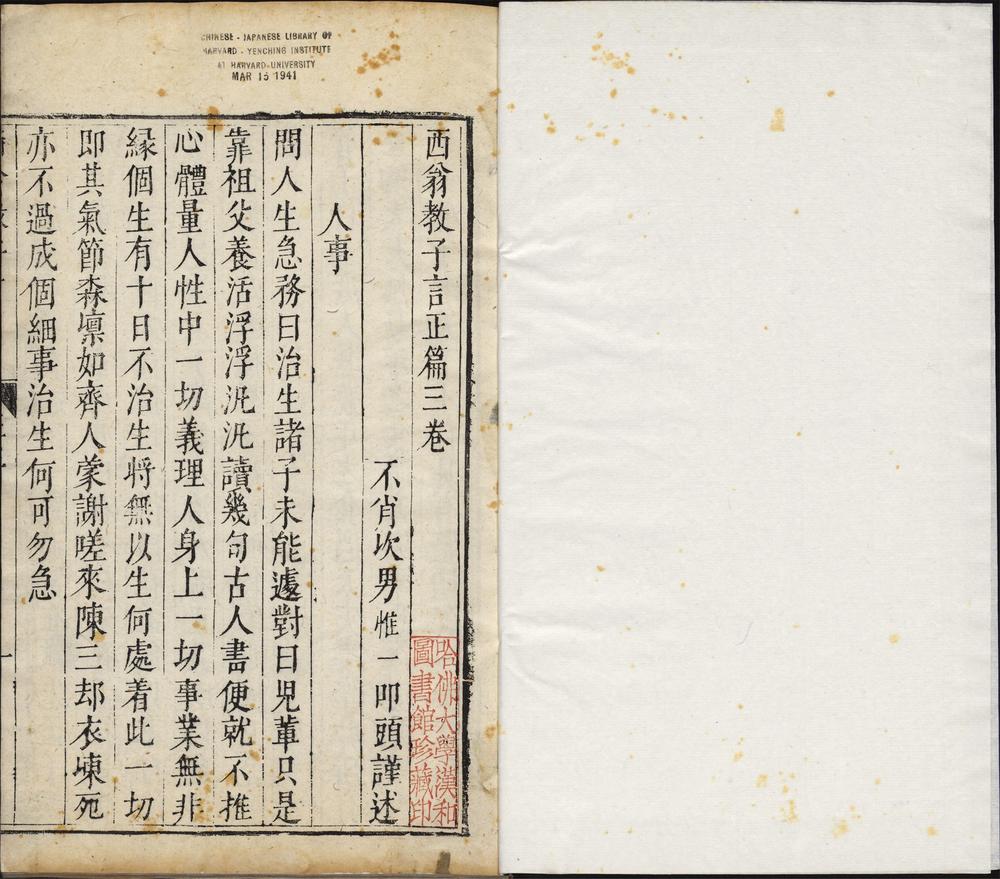 CHINESE - JAPANESE LIBRARY OF
HARVARD - YENCHING INSTITUTE
AT HARVARD UNIVERSITY
MAR 15 1941
西翁教子言正篇三卷
不肖坎男惟一叩頭謹述
人事
問人生急務曰治生諸子未能遽對曰児軰只是
靠祖父養活浮浮汎汎讀幾句古人書便就不推
心體量人性中一切義理人身上一切事業無非
縁個生有十日不治生将無以生何處着此一切
即其氣節森凛如齊人蒙謝嗟來陳三却衣竦死
亦不過成個細事治生何可勿急
哈佛大學漢和
圖書館珍藏印